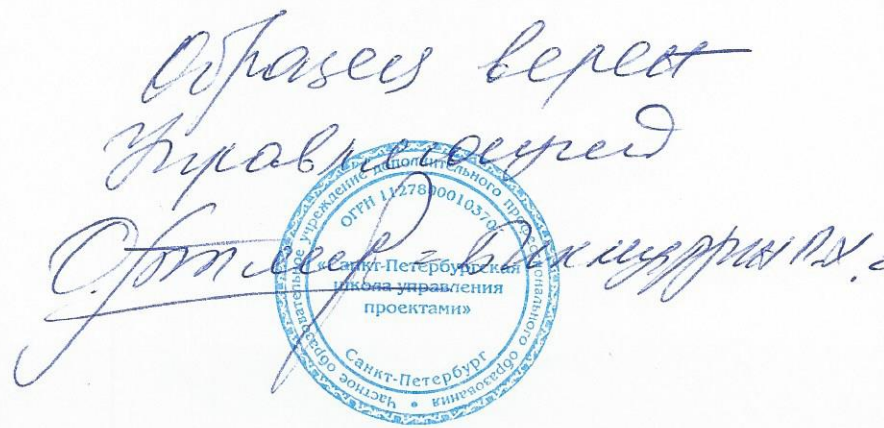 Образец верен
Управляющий
Частное образовательное учреждение дополнительного профессионального образования
ОГРН 1127800010370
«Санкт-Петербургская
школа управления
проектами»
Санкт-Петербург